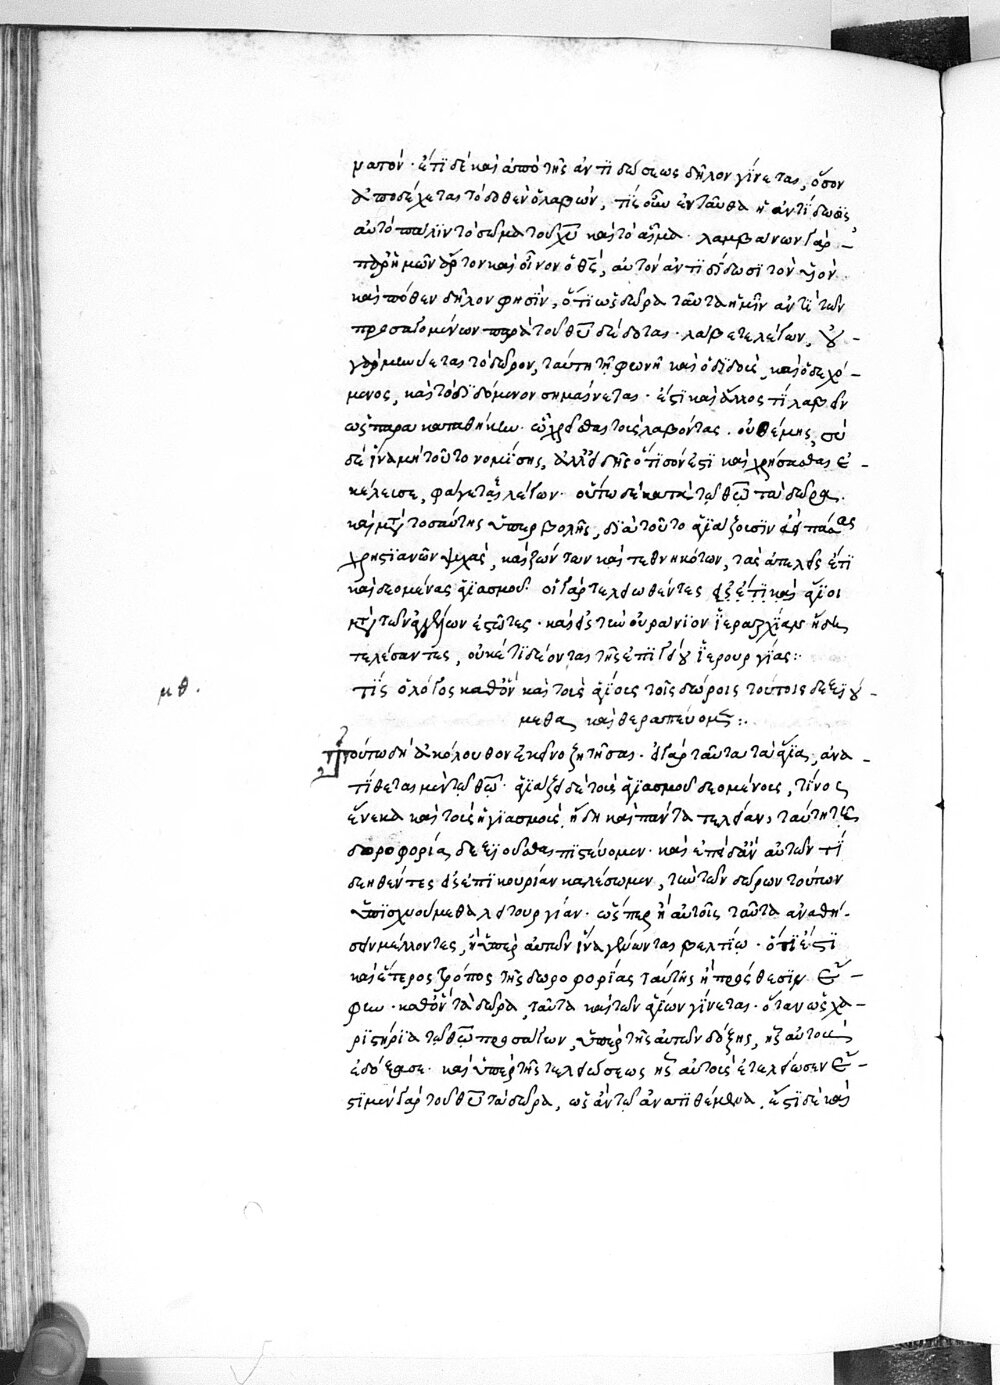 ματων· ἔτι δὲ καὶ ἀπὸ τῆς ἀντιδώσεως δῆλον γίνεται, ὅσον
ἀποδέχεται τὸ δοθὲν ὁ λαβών, τίς οὖν ἐνταῦθα ἡ ἀντίδωσις
αὐτὸ πάλιν τὸ σῶμα τοῦ χῦ καὶ τὸ αἷμα· λαμβάνων γὰρ
παρ' ἡμῶν ἄρτον καὶ οἶνον ὁ θς, αὐτὸν ἀντιδίδωσι τὸν υἱόν
καὶ πόθεν δῆλον φησίν, ὅτι ὡς δῶρα ταῦτα ἡμῖν ἀντὶ τῶν
προσαγομένων παρὰ τοῦ θῦ δέδοται· λάβετε λέγων, οὐ
γὰρ μέμψεται τὸ δῶρον, ταύτῃ τῇ φωνῇ καὶ ὁ διδούς, καὶ ὁ δεχό-
μενος, καὶ τὸ διδόμενον σημαίνεται· ἔστι καὶ ἄλλως τί λαβεῖν
ὡς παρακαταθήκην· εὐχρεῖσθαι τοὺς λαβόντας. οὐ θέμις, σὺ
δὲ ἵνα μὴ τοῦτο νομίσῃς, ἀλλ' εἰδῇς ὅτι σόν ἐστι καὶ χρήσασθαι ἐ-
κέλευσε, φάγεται λέγων· οὕτω δέκατα τῶ θῶ τὰ δῶρα.
καὶ μετὰ τοσαύτης ὑπερβολῆς, διὰ τοῦτο ἁγιάζουσιν ἁπάσας
χρηστιανῶν ψυχάς, καὶ ζώντων καὶ τεθνηκότων, τὰς ἀτελεῖς ἔτι
καὶ δεομένας ἁγιασμοῦ· οἱ γὰρ τελειωθέντες ἅγιοι
μετὰ τῶν ἀγγέλων ἑστῶτες· καὶ εἰς τὴν οὐρανίον ἱεραρχίαν ἤδη
τελέσαντες, οὐκέτι δέονται τῆς ἐπιγείου ἱερουργίας:
μθ. τίς ὁ λόγος καθ' ὃν καὶ τοὺς ἁγίους τοῖς δώροις τούτοις δεξιού-
μεθα καὶ θεραπεύομεν:
Τούτω δὴ ἀκόλουθον ἐκεῖνο ζητῆσαι· εἰ γὰρ ταῦτα τὰ ἅγια, ἀνα-
τίθεται μὲν τῶ θῶ· ἁγιάζει δὲ τοὺς ἁγιασμοῦ δεομένους, τίνος
ἕνεκα καὶ τοὺς ἡγιασμένους ἤδη καὶ πάντα τελείαν, ταύτης τῆς
δωροφορίας δεξιοῦσθαι πιστεύομεν· καὶ ἐπειδὰν αὐτῶν τί
δεηθέντες εἰς ἐπικουρίαν καλέσωμεν, τὴν τῶν δώρων τούτων
ὑπισχνούμεθα λειτουργίαν· ὥσπερ ἢ αὐτοῖς ταῦτα ἀναθή-
σειν μέλλοντες, ἢ ὑπὲρ αὐτῶν ἵνα γένωνται βελτίω· ὅτι ἐστὶ
καὶ ἕτερος τρόπος τῆς δωροφορίας ταύτης ἡ πρόθεσιν ἔ-
φην· καθ' ὃν τὰ δῶρα ταῦτα καὶ τῶν ἁγίων γίνεται· ὅταν ὡς χα-
ριστήρια τῶ θῶ προσάγων, ὑπὲρ τῆς αὐτῶν δόξης, ἧς αὐτοὺς
ἐδόξασε· καὶ ὑπὲρ τῆς τελειώσεως ἧς αὐτοὺς ἐτελείωσεν ἔ-
στι μὲν γὰρ τοῦ θῦ τὰ δῶρα, ὡς ἂν τῶ ἀνατιθέμενα. ἔστι δὲ καὶ